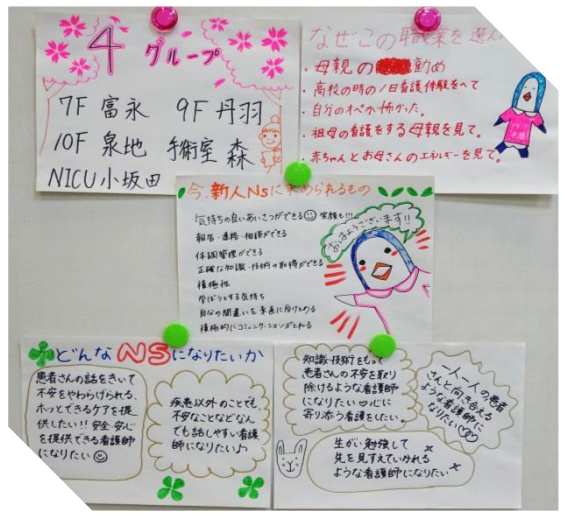 4 グループ
7F 富永 9F 丹羽
10F 泉地 手術室 森
NICU 小坂田
なぜこの職業を選ん
・母親の 勧め
・高校の時の1日看護体験をへて
・自分のオペが怖かった。
・祖母の看護をする母親を見て。
・赤ちゃんとお母さんのエネルギーを見て。
今、新人Nsに求められるもの
気持ちの良いあいさつができる 笑顔も!!!
報告・連絡・相談ができる
体調管理ができる
正確な知識・技術の取得ができる
積極性
学ぼうとする気持ち
自分の間違いを素直に受けとめる
積極的にコミュニケーションがとれる
おはようございます!!
どんなNSになりたいか
患者さんの話をきいて
不安をやわらげられる、
ホッとできるケアを提
供したい!! 安全・安心
を提供できる看護師
になりたい
疾患以外のことでも、
不安なことなどなん
でも話しやすい看護
師になりたい♪
知識・技術をもって
患者さんの不安を取り
除けるような看護師
になりたい♡心に
寄り添う看護をしたい。
一人一人の患者
さんと向き合える
ような看護師に
なりたい♡♡
生がい勉強して
先を見すえていかれる
ような看護師になりたい